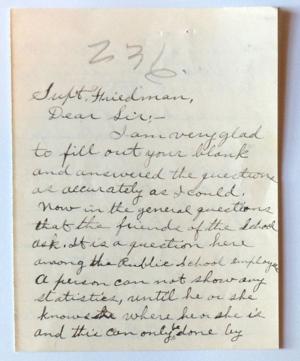 236.
Supt. Friedman,
Dear Sir:-
I am very glad
to fill out your blank
and answered the questions
as accurately as I could.
Now in the general questions
that the friends of the School
ask. It is a question here
among the Public School employees
A person can not show any
statistics, until he or she
knows where he or she is
and this can only be done by